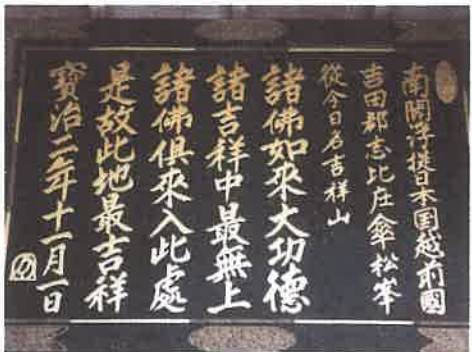 南閻浮提日本国越前國
吉田郡志比庄傘松峯
従今日名吉祥山
諸佛如來大功德
諸吉祥中最無上
諸佛俱來入此處
是故此地最吉祥
寳治二年十一月一日